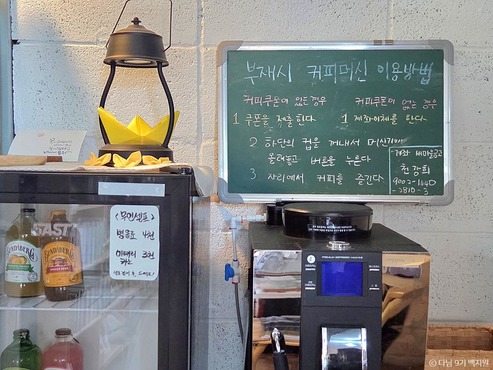 부재시 커피머신 이용방법
커피쿠폰이 있는 경우
커피쿠폰이 없는 경우
1 쿠폰을 제출한다
1 계좌이체를 한다
2 하단의 컵을 꺼내서 머신기에
올려놓고 버튼을 누른다
3 자리에서 커피를 즐긴다
계좌 새마을금고
9002-1640
-2810-3
<무인셀프>
병음료 4천
3천
© 다님 9기 백지원